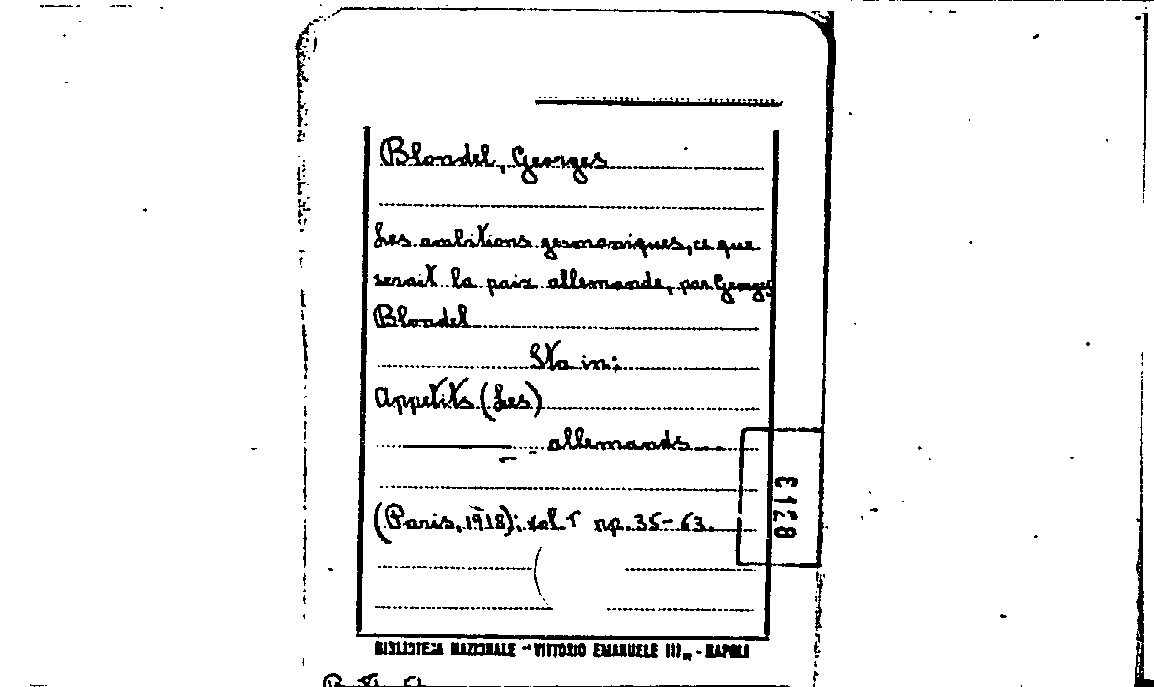 Blondel, Georges
Les ambitions germaniques, ce que
serait la paix allemande, par Georges
Blondel
Sta in:
Appetits (Les)
allemands
(Paris, 1918); vol. pp. 35-63.
8213
BIBLIOTECA NAZIONALE "VITTORIO EMANUELE III" - NAPOLI